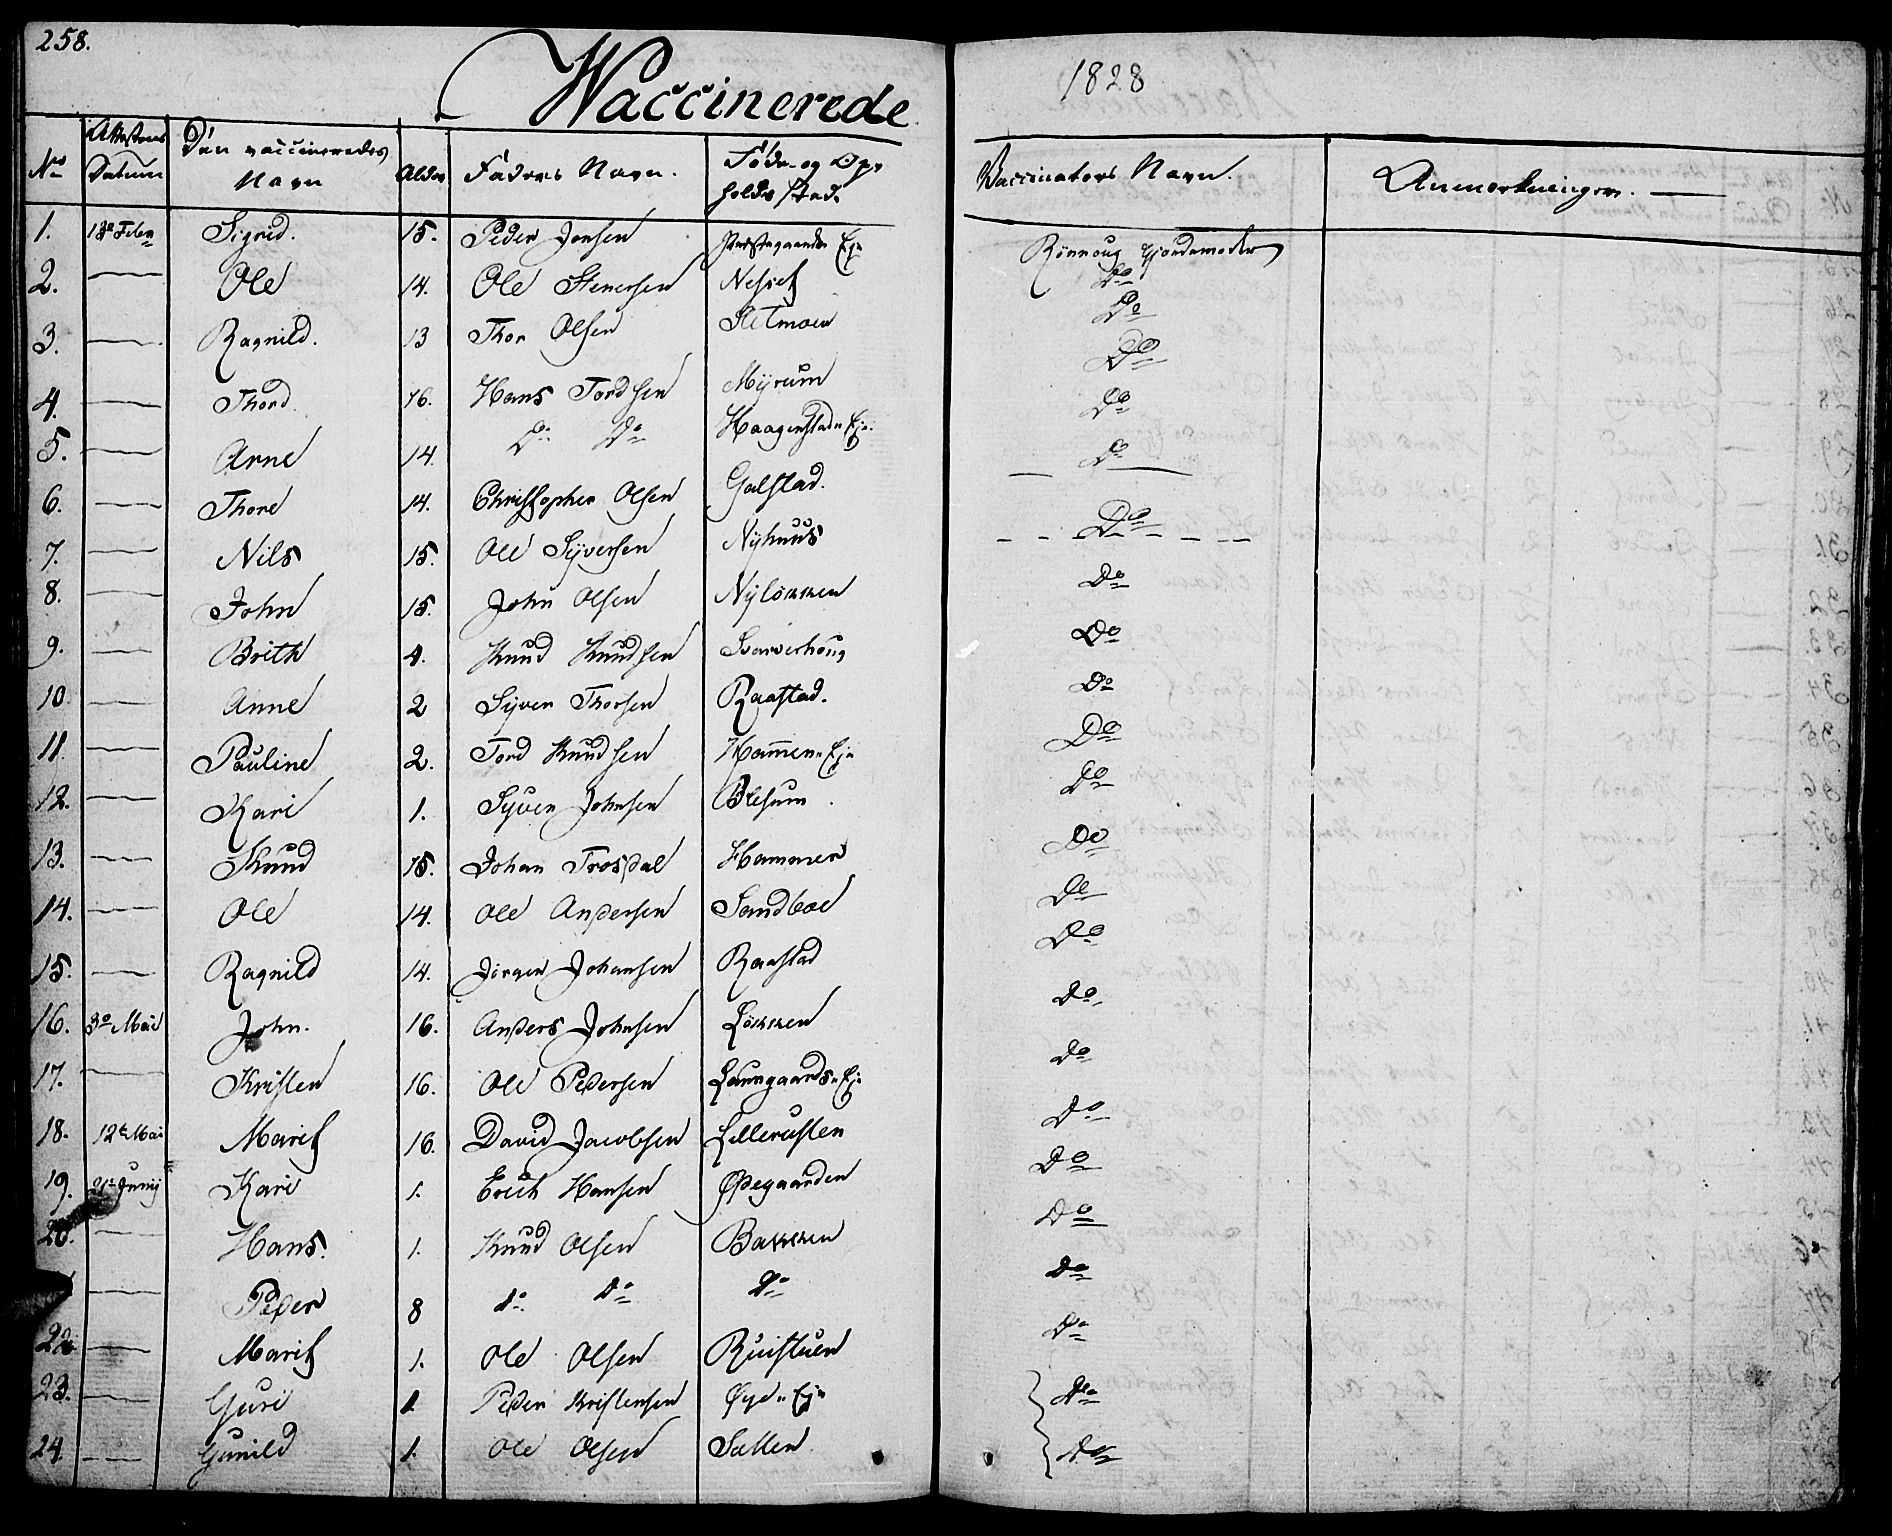 258.
Waccinerede
1828
No Attestens Datum Den vaccineredes Navn Alder Faders Navn. Føde- og Opholds stad. Vaccinators Navn. Anmærkninger.
1. 13de Febr Sigrid. 15. Peder Jonsen Eje Rønnoug Gjordemoder
2. — Ole 14. Ole Stenersen Nesset Do
3. — Ragnild. 13 Thor Olsen Sletmoen Do
4. — Thord. 16. Hans Tordsen Myrum Do
5. — Arne 14. Do Do Haagenstad Eje. Do
6. — Thore 14. Christopher Olsen Galstad. Do
7. — Nils 15. Ole Syversen Nyhuus Do
8. — John 15. John Olsen Nyløkken Do
9. — Brith 4. Knud Knudsen Svarverhoug Do
10. — Anne 2 Syver Thorsen Raastad. Do
11. — Pauline 2. Tord Knudsen Hammen Eje Do
12. — Kari 1. Syver Johnsen Blesum. Do
13. — Knud 15. Johan Trosdal Hammer Do
14. — Ole 14. Ole Andersen Sandboe Do
15. — Ragnild 14. Jörgen Johansen Raastad Do
16. 3o Mai John. 16. Anders Johnsen Løkken Do
17. — Kristen 16. Ole Pedersen Laurgaards Eje Do
18. 12te Mai Marit 16. David Jacobsen Lillerusten Do
19. 21de Junij Kari 1. Erich Hansen Ødegaarden Do
20. — Hans. 1. Knud Olsen Bakken Do
— Peder 8 do Do Do Do
22. — Marit 1. Ole Olsen Ruistuen Do
23. — Guri 1 Peder Kristensen Øye Eje Do
24. — Gunild 1. Ole Olsen Sletten Do